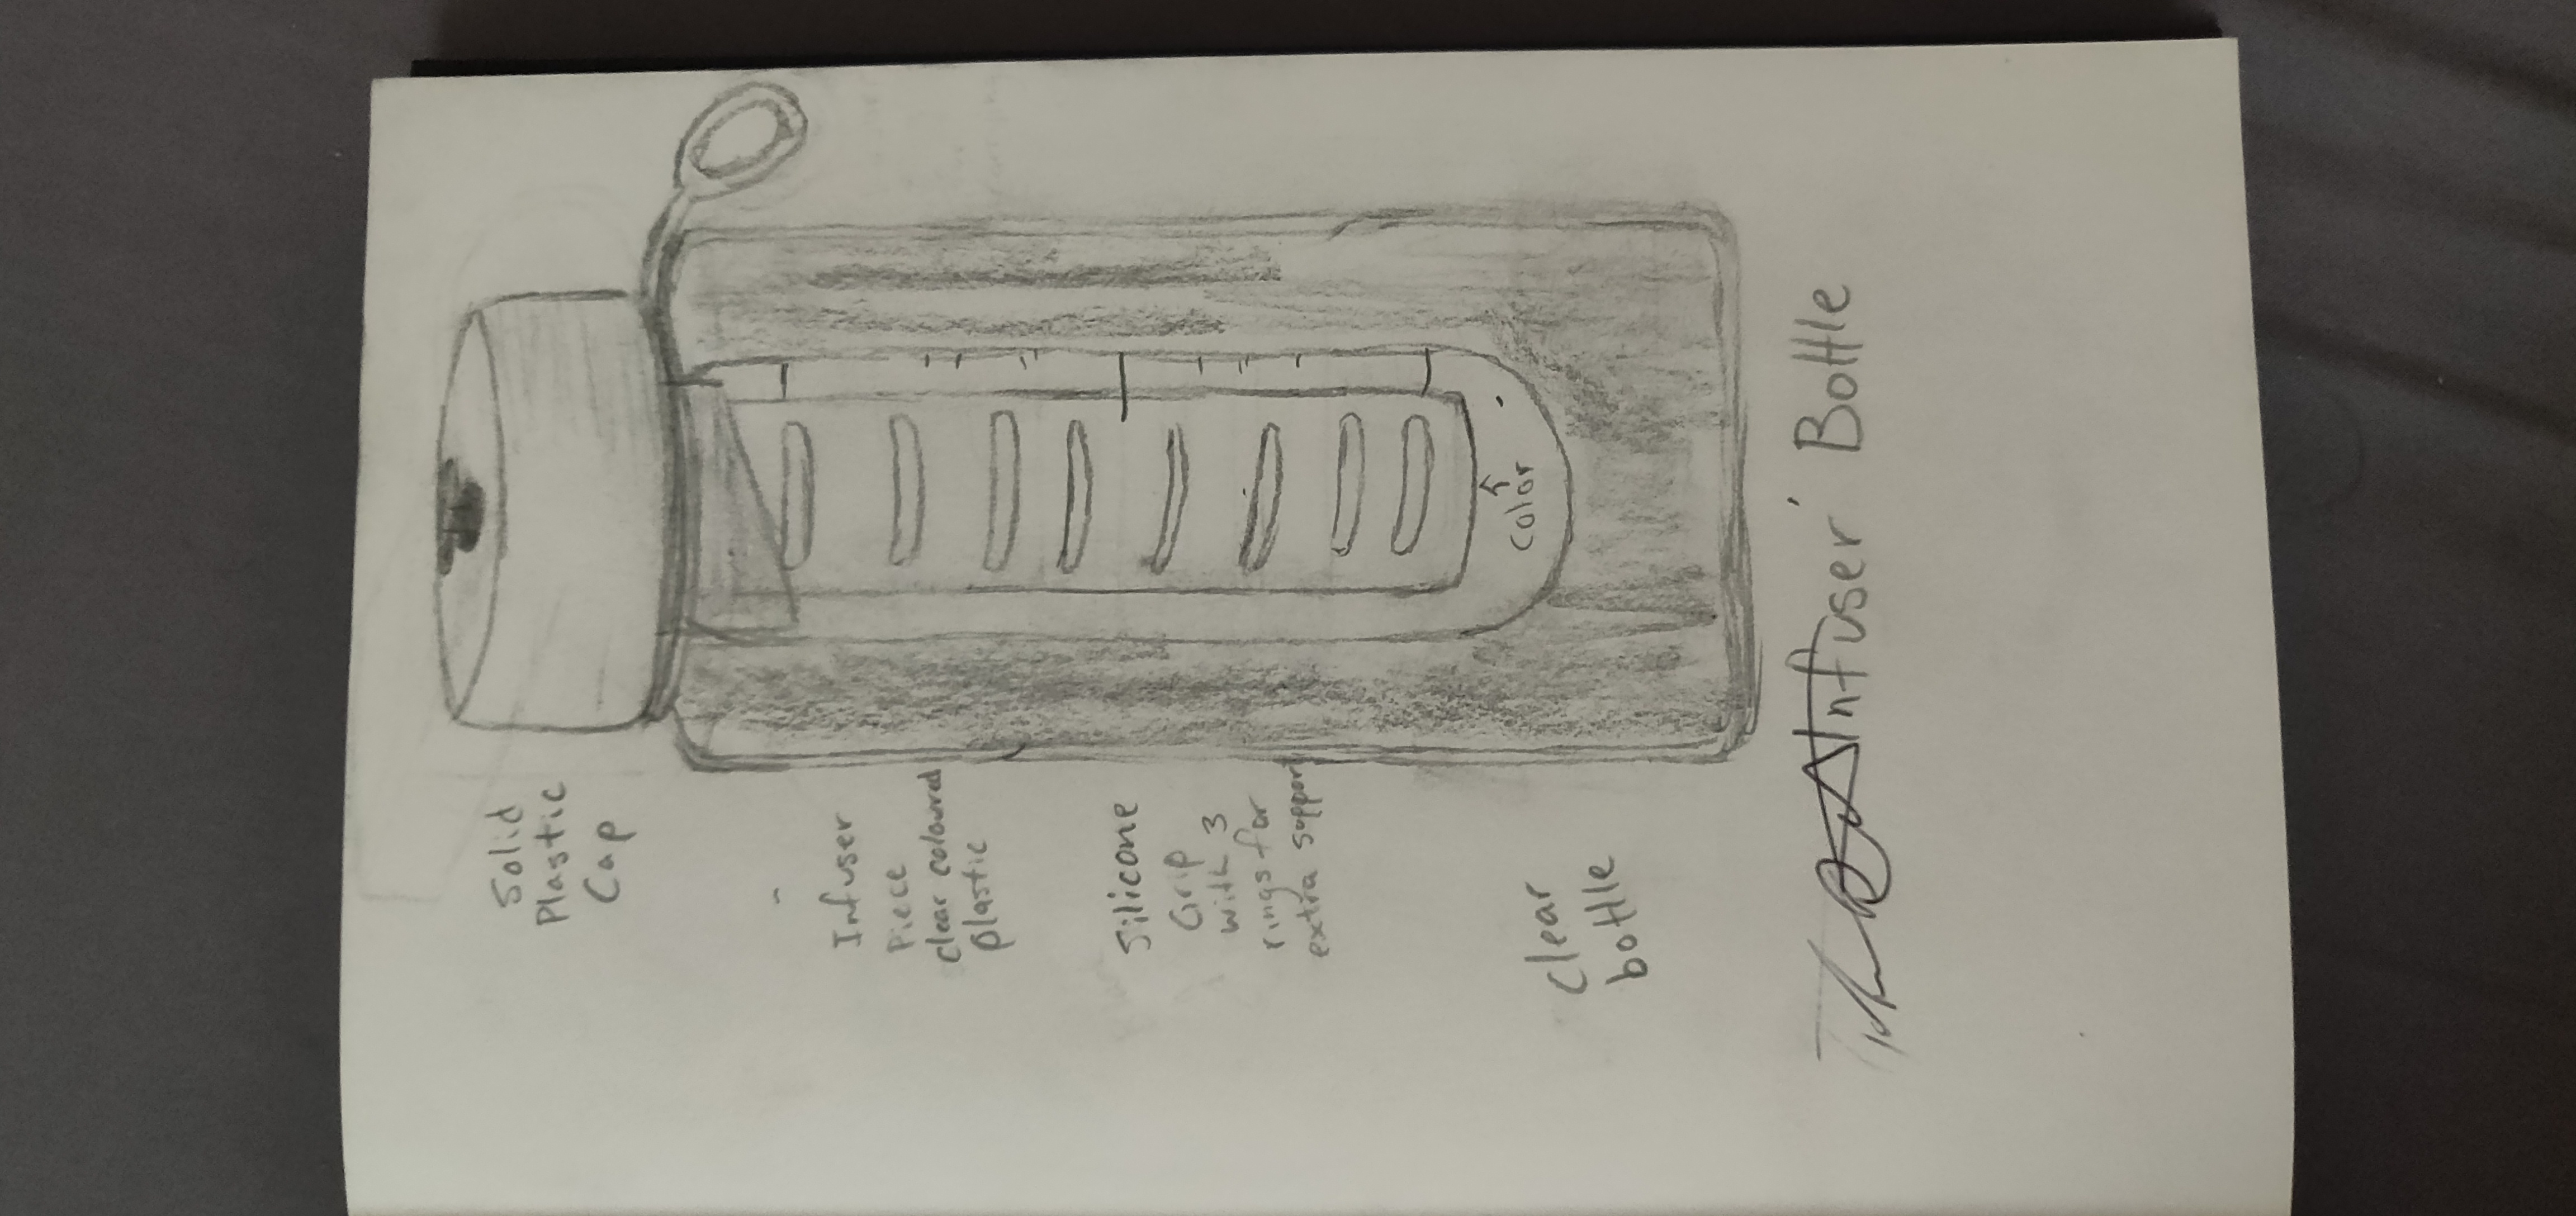 Solid
Plastic
Cap
Infuser
Piece
clear coloured
plastic
Silicone
Grip
with 3
rings for
extra support
color
clear
bottle
Infuser Bottle